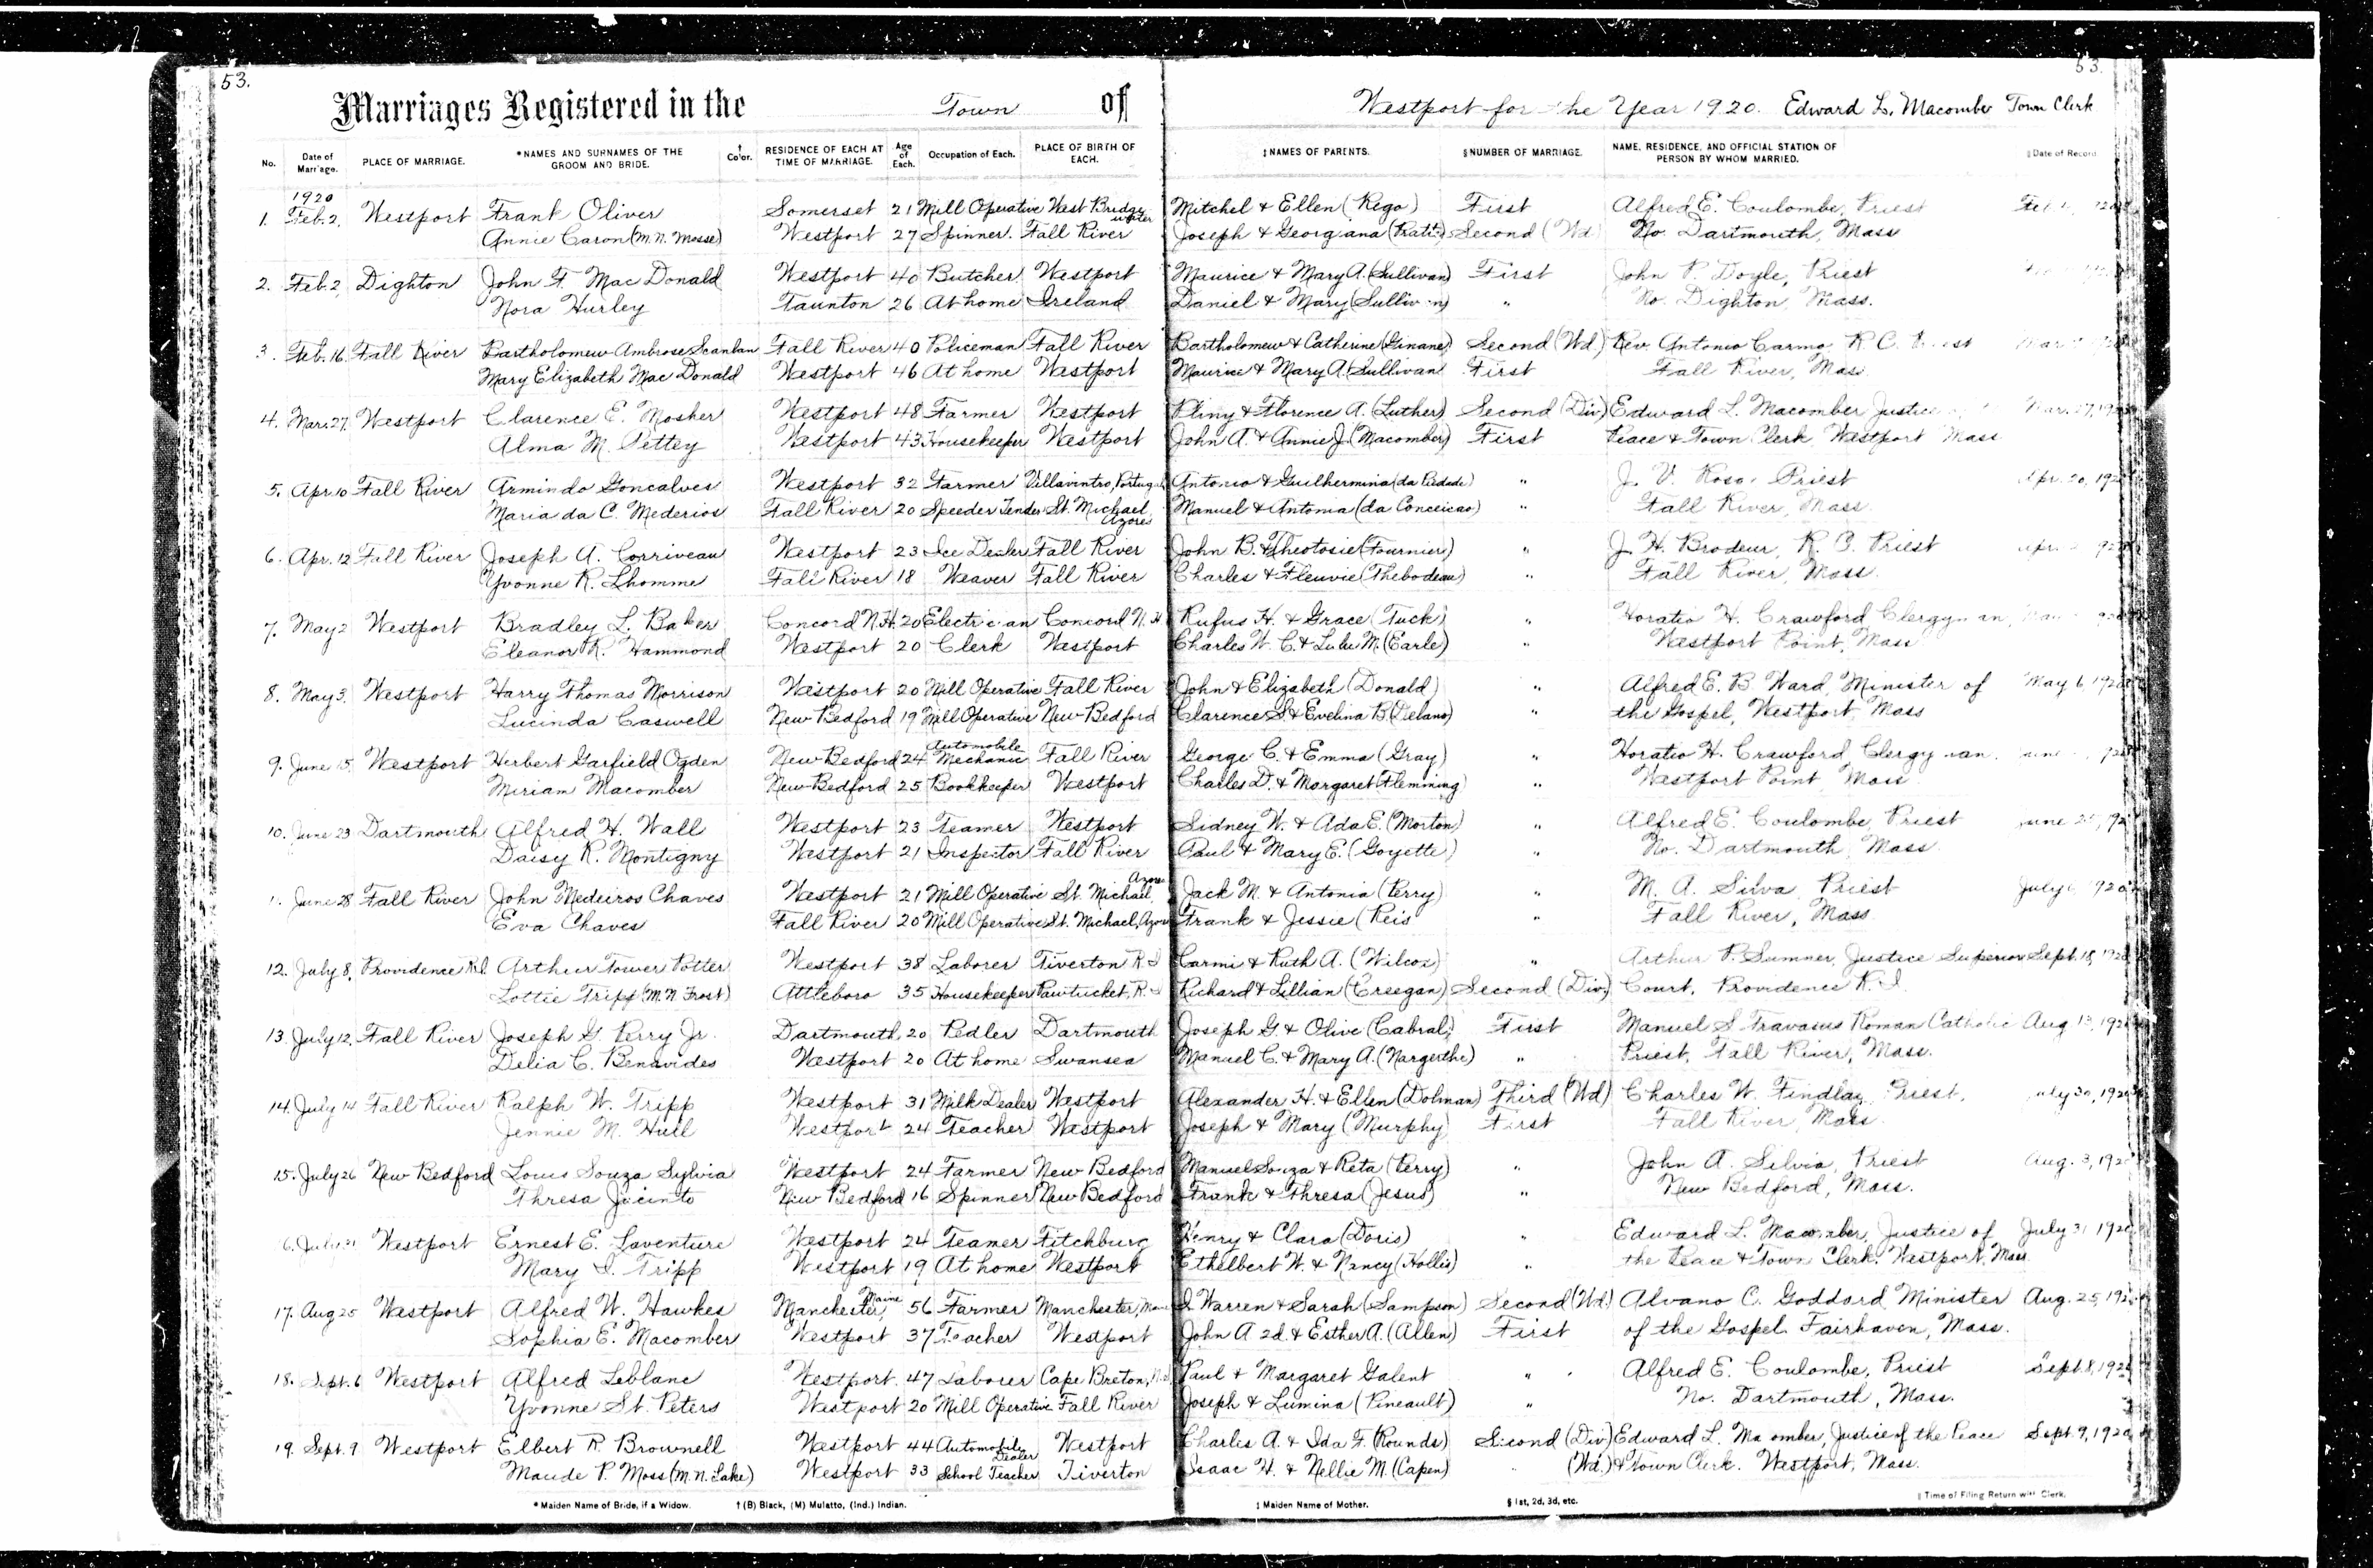 53.
53.
Marriages Registered in the Town of Westport for the Year 1920. Edward L. Macomber Town Clerk
No. Date of Marriage. PLACE OF MARRIAGE. *NAMES AND SURNAMES OF THE GROOM AND BRIDE. † Color. RESIDENCE OF EACH AT TIME OF MARRIAGE. Age of Each. Occupation of Each. PLACE OF BIRTH OF EACH. ‡NAMES OF PARENTS. §NUMBER OF MARRIAGE. NAME, RESIDENCE, AND OFFICIAL STATION OF PERSON BY WHOM MARRIED. ‖Date of Record
1920
1. Feb. 2, Westport Frank Oliver Somerset 21 Mill Operative West Bridgewater Mitchel & Ellen (Rego) First Alfred E. Coulombe, Priest
Annie Caron (M.N. Mosse) Westport 27 Spinner. Fall River Joseph & Georgiana Second (Wd) No. Dartmouth, Mass
2. Feb. 2, Dighton John F. Mac Donald Westport 40 Butcher Westport Maurice & Mary A. (Sullivan) First John P. Doyle, Priest
Nora Hurley Taunton 26 At home Ireland Daniel & Mary (Sullivan) " No. Dighton, Mass.
3. Feb. 16. Fall River Bartholomew Ambrose Scanlan Fall River 40 Policeman Fall River Bartholomew & Catherine (Ginane) Second (Wd) Rev. Antonio Carmo, R C. Priest
Mary Elizabeth Mac Donald Westport 46 At home Westport Maurice & Mary A. (Sullivan First Fall River, Mass.
4. Mar. 27. Westport Clarence E. Mosher Westport 48 Farmer Westport Pliny & Florence A. (Luther) Second (Div) Edward L. Macomber Justice Mar. 27, 1920
Alma M. Pettey Westport 43 Housekeeper Westport John A. & Annie J. (Macomber) First Peace & Town Clerk, Westport Mass
5. Apr. 10 Fall River Armindo Goncalves Westport 32 Farmer Portugal Antonio & Guilhermina (da Piedade) " J. V. Rosa, Priest Apr. 20, 1920
Maria da C. Mederios Fall River 20 Speeder Tender St. Michael, Azores Manuel & Antonia (da Conceicao) " Fall River, Mass.
6. Apr. 12 Fall River Joseph A. Corriveau Westport 23 Ice Dealer Fall River John B. & Theotosie (Fournier) " J. H. Brodeur, R. C. Priest
Yvonne R. Lhomme Fall River 18 Weaver Fall River Charles & Fleuvie (Thebodeau) " Fall River, Mass.
7. May 2 Westport Bradley L. Baker Concord N.H. 20 Electrician Concord N. H Rufus H. & Grace (Tuck) " Horatio H. Crawford Clergyman,
Eleanor R. Hammond Westport 20 Clerk Westport Charles W. C. & Lulu M. (Earle) " Westport Point, Mass
8. May 3, Westport Harry Thomas Morrison Westport 20 Mill Operative Fall River John & Elizabeth (Donald) " Alfred E. B. Ward, Minister of May 6, 1920
Lucinda Caswell New Bedford 19 Mill Operative New Bedford Clarence S. & Evelina B. (Delano) " the Gospel, Westport, Mass
9. June 15, Westport Herbert Garfield Ogden New Bedford 24 Automobile Mechanic Fall River George C. & Emma (Gray) " Horatio H. Crawford, Clergyman.
Miriam Macomber New Bedford 25 Bookkeeper Westport Charles D. & Margaret Flemming " Westport Point Mass
10. June 23 Dartmouth Alfred H. Wall Westport 23 Teamer Westport Sidney W. & Ada E. (Morton) " Alfred E. Coulombe, Priest
Daisy R. Montigny Westport 21 Inspector Fall River Paul & Mary E. (Goyette) " No. Dartmouth, Mass.
11. June 28 Fall River John Medeiros Chaves Westport 21 Mill Operative St. Michael, Azores Jack M. & Antonia (Perry) " M. A. Silva, Priest
Eva Chaves Fall River 20 Mill Operative St. Michael, Azores Frank & Jessie (Reis " Fall River, Mass
12. July 8, Providence R.I. Arthur Tower Potter Westport 38 Laborer Tiverton R. I Carmi & Ruth A. (Wilcox) " Arthur P. Sumner, Justice Superior Sept. 18, 1920
Lottie Tripp (M.N. Frost) Attleboro 35 Housekeeper Pawtucket, R. I Richard & Lillian (Creegan) Second (Div.) Court, Providence R. I.
13. July 12, Fall River Joseph G. Perry Jr. Dartmouth 20 Pedler Dartmouth Joseph G & Olive (Cabral) First Manuel S Travasus Roman Catholic Aug 13, 1920
Delia C. Benevides Westport 20 At home Swansea Manuel C. & Mary A. " Priest, Fall River, Mass.
14. July 14 Fall River Ralph W. Tripp Westport 31 Milk Dealer Westport Alexander H. & Ellen (Dolman) Third (Wd) Charles W. Findlay, Priest. July 20, 1920
Jennie M. Hull Westport 24 Teacher Westport Joseph & Mary (Murphy) First Fall River, Mass.
15. July 26 New Bedford Louis Souza Sylvia Westport 24 Farmer New Bedford Manuel Souza & Reta (Perry) " John A. Silvia, Priest Aug. 3, 1920
Thresa Jacinto New Bedford 16 Spinner New Bedford Frank & Thresa (Jesus) " New Bedford, Mass.
16. July 31 Westport Ernest E. Laventure Westport 24 Teamer Fitchburg Henry & Clara (Doris) " Edward L. Macomber, Justice of July 31 1920
Mary I. Tripp Westport 19 At home Westport Ethelbert W. & Nancy (Hollis) " the Peace & Town Clerk. Westport, Mass
17. Aug 25 Westport Alfred W. Hawkes Manchester, Maine 56 Farmer Manchester, Maine I. Warren & Sarah (Sampson) Second (Wd.) Alvano C. Goddard Minister Aug. 25, 1920
Sophia E. Macomber Westport 37 Teacher Westport John A 2d. & Esther A. (Allen) First of the Gospel. Fairhaven, Mass.
18. Sept. 6 Westport Alfred Leblanc Westport. 47 Laborer Cape Breton, Paul & Margaret Galent " Alfred E. Coulombe, Priest Sept. 8, 1920
Yvonne St. Peters Westport 20 Mill Operative Fall River Joseph & Lumina (Pineault) " No. Dartmouth, Mass.
19. Sept. 9 Westport Elbert R. Brownell Westport 44 Automobile Dealer Westport Charles A. & Ida F. (Rounds) Second (Div) Edward L. Macomber, Justice of the Peace Sept. 9, 1920
Maude P. Moss (M.N. Lake) Westport 33 School Teacher Tiverton Isaac H. & Nellie M. (Capen) " (Wd.) & Town Clerk. Westport, Mass.
* Maiden Name of Bride, if a Widow. † (B) Black, (M) Mulatto, (Ind.) Indian. ‡ Maiden Name of Mother. § 1st, 2d, 3d, etc. ‖ Time of Filing Return with Clerk.